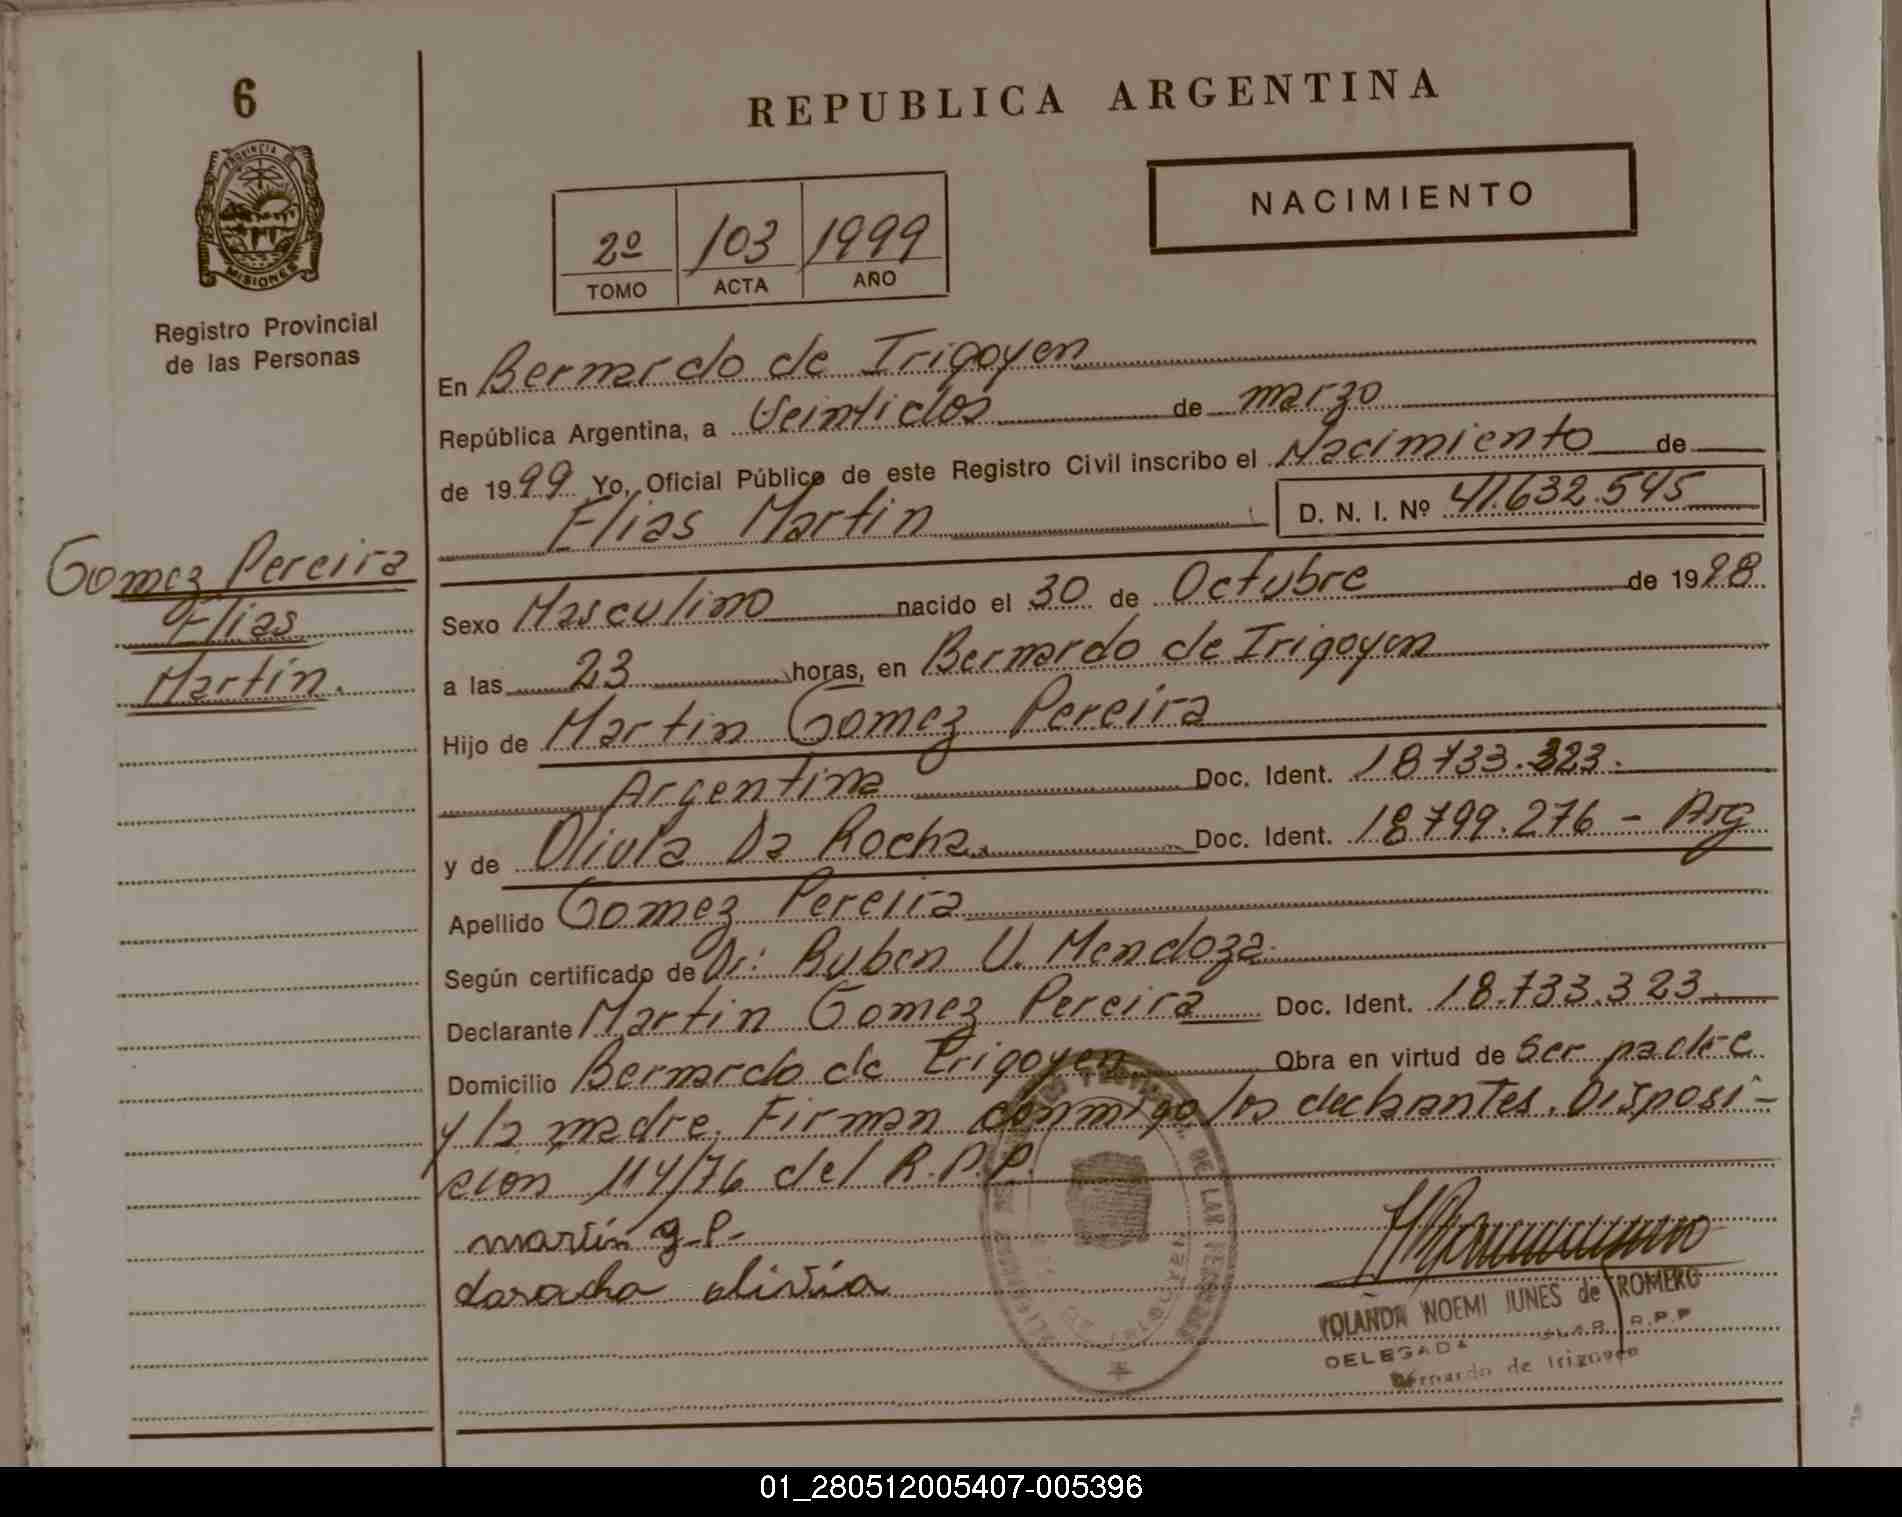 6
PROVINCIA DE
MISIONES
Registro Provincial
de las Personas
Gomez Pereira
Elias
Martín.
REPUBLICA ARGENTINA
NACIMIENTO
2º 103 1999
TOMO ACTA AÑO
En Bernardo de Irigoyen
República Argentina, a Veintidos de marzo
de 1999 Yo, Oficial Público de este Registro Civil inscribo el Nacimiento de
Elias Martin D. N. I. Nº 41.632.545
Sexo Masculino nacido el 30 de Octubre de 1998
a las 23 horas, en Bernardo de Irigoyen
Hijo de Martin Gomez Pereira
Argentina Doc. Ident. 18733.323.
y de Olivia Da Rocha. Doc. Ident. 18799.276 - Arg
Apellido Gomez Pereira
Según certificado de Dr: Ruben V. Mendoza.
Declarante Martin Gomez Pereira Doc. Ident. 18.733.323.
Domicilio Bernardo de Irigoyen Obra en virtud de Ser padre
y la madre. Firman conmigo los declarantes. Disposi-
cion 114/76 del R.P.P.
martín g-P-
darocha olivia
YOLANDA NOEMI JUNES de ROMERO
DELEGADA R.P.P
Bernardo de Irigoyen
DE LAS PERSONAS
01_280512005407-005396